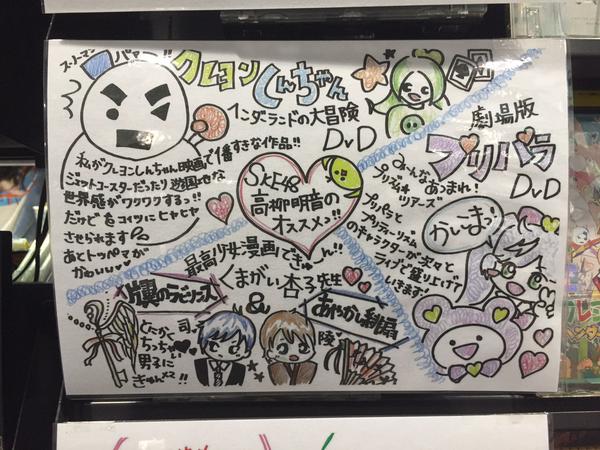 スノーマン
パァー!!
クレヨン
しんちゃん
ヘンダーランドの大冒険
DVD
私がクレヨンしんちゃん映画で1番すきな作品!!
ジェットコースターだったり遊園地な
世界感がワクワクするっ!!
だけど コイツにヒヤヒヤ
させられます
あとトッペマが
かわいい
SKE48
高柳明音の
オススメッ!!
劇場版
プリパラ
DVD
み〜んな
あつまれ!
プリズム☆
ツアーズ
プリパラと
プリティーリズム
のキャラクターが 次々と
ライブで盛り上げて
いきます!
かしこまっ
最高少女漫画できゅん!!
くまがい杏子先生
翼のラビリンス
&
あやかし緋扇
どんか
司
ちっちゃい
男子に
きゅん××
陵